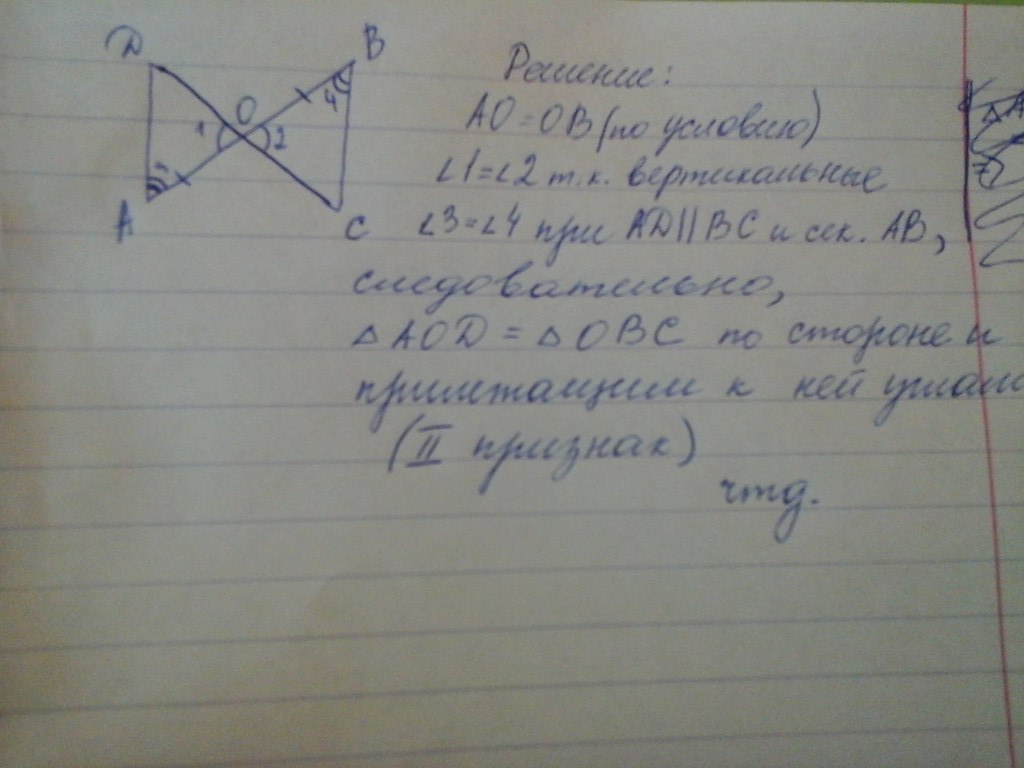 D
B
O
1
2
3
4
A
C
Решение:
AO = OB (по условию)
∠1=∠2 т.к. вертикальные
∠3=∠4 при AD||BC и сек. AB,
следовательно,
△AOD = △OBC по стороне и
прилежащим к ней углам
(II признак)
чтд.
△A